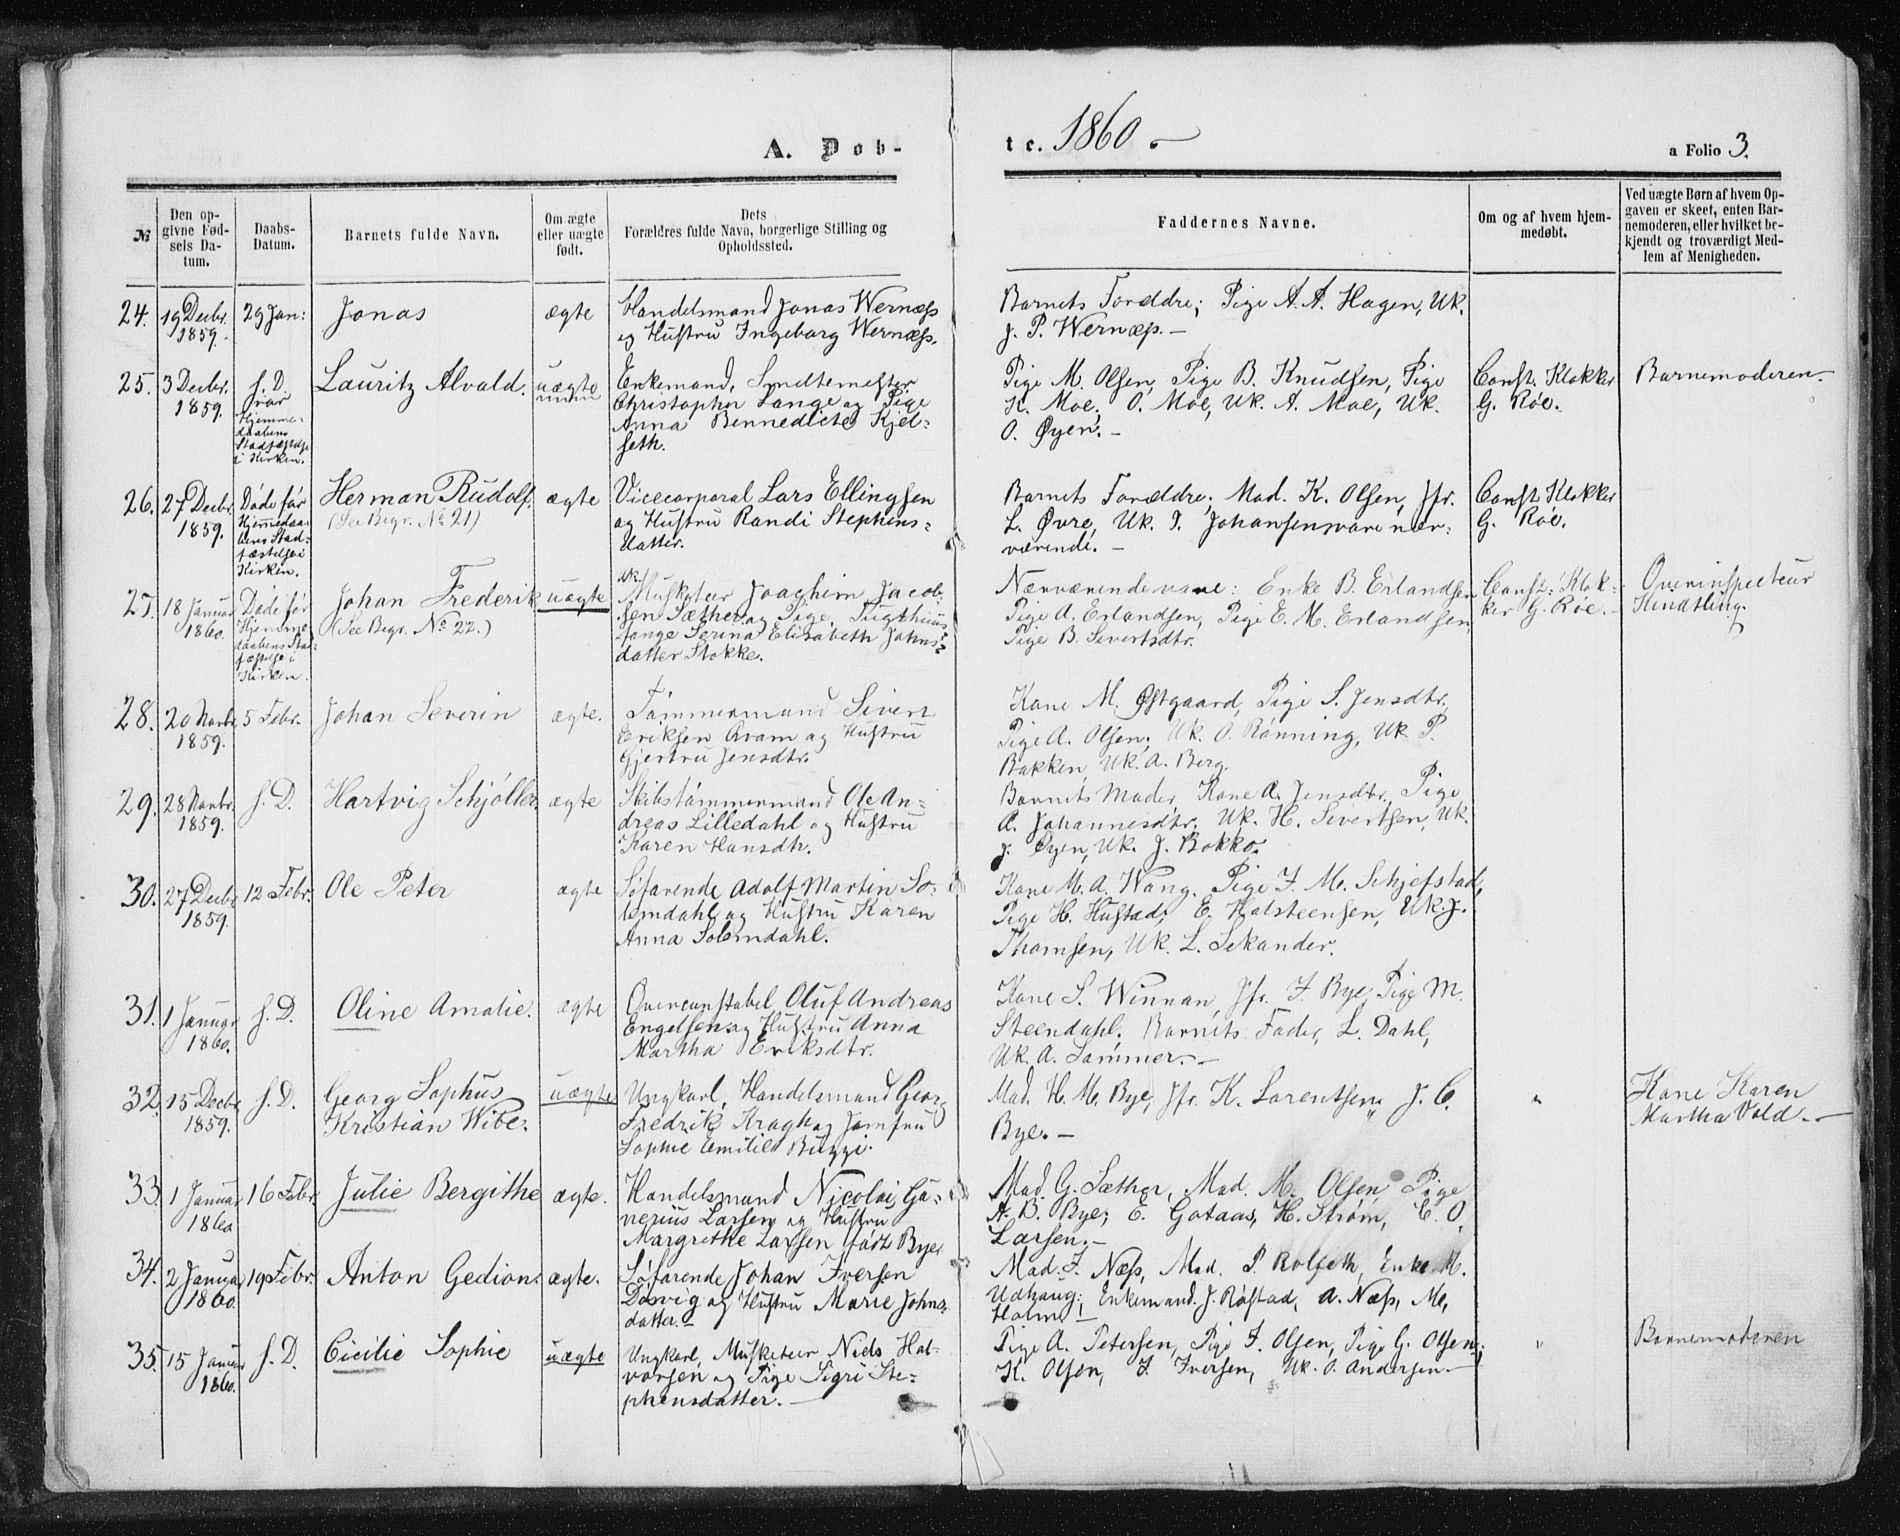 A. Døb-
te. 1860.-
a Folio 3.
№
Den op-
givne Fød-
sels Da-
tum.
Daabs-
Datum.
Barnets fulde Navn.
Om ægte
eller uægte
født.
Dets
Forældres fulde Navn, borgerlige Stilling og
Opholdssted.
Faddernes Navne.
Om og af hvem hjem-
medøbt.
Ved uægte Børn af hvem Op-
gaven er skeet, enten Bar-
nemoderen, eller hvilket be-
kjendt og troværdigt Med-
lem af Menigheden.
24. 19 Decbr. 29 Jan: Jonas ægte Handelsmand Jonas Wernæss Barnets Forældre; Pige A. A. Hagen, Uk.
1859. og Hustru Ingeborg Wernæss. J. P. Wernæss.-
25. 3 Decbr. s. D. Lauritz Alvald. uægte Enkemand, Smedtemester Pige M. Olsen, Pige B. Knudsen, Pige Const. Klokker Barnemoderen.
1859. var Christopher Lange og Pige K. Moe, O. Moe, Uk. A. Moe, Uk. G. Røe.
Hjemme- Anna Bennedicte Kjel- O. Øyen.-
daabens seth.
Stadfæstelse
i Kirken.
26. 27 Decbr. Døde før Herman Rudolf. ægte Vicecorporal Lars Ellingsen Barnets Forældre, Mad. K. Olsen, Jfr. Const Klokker
1859. Hjemmedaa- (See Begr. № 21) og Hustru Randi Stephens- L. Øvre, Uk. I. Johansen vare nær- G. Røe.
bens Stad- datter. værende.-
fæstelse i
Kirken.
27. 18 Januar Døde før Johan Frederik uægte Uk. Musketeer Joachim Jacob- Nærværende vare: Enke B. Erlandsen Const: Klok- Overinspecteur
1860. Hjemme- (See Begr. № 22.) sen Sæther og Pige, Tugthuus- Pige A. Erlandsen, Pige E. M. Erlandsen, ker G. Røe.- Hindtling.
daabens Stad- fange Serina Elisabeth Johns- Pige B. Sivertsdtr.
fæstelse i datter Stokke.
Kirken.
28. 20 Novbr. 5 Febr. Johan Severin ægte. Tømmermand Sivert Kone M. Østgaard, Pige S. Jensdtr.
1859. Eriksen Qvam og Hustru Pige A. Olsen, Uk. O. Rønning, Uk P.
Gjertru Jensdtr. Bakken, Uk. A. Berg.
29. 28 Novbr. s. D. Hartvig Schjøller. ægte Skibstømmermand Ole An- Barnets Moder, Kone A. Jensdtr, Pige
1859. dreas Lilledahl og Hustru A. Johannesdtr. Uk. H. Sivertsen, Uk.
Karen Hansdtr. J. Øyen, Uk. J. Bokko.
30. 27 Decbr. 12 Febr. Ole Peter ægte Søfarende Adolf Martin So- Kone M. A. Wang, Pige F. M. Schjefstad,
1859. lemdahl og Hustru Karen Pige H. Hustad, E. Halsteensen, Uk. J.
Anna Solemdahl. Thomsen, Uk. L. Sekander.
31. 1 Januar s. D. Oline Amalie. ægte Overconstabel Oluf Andreas Kone S. Winnan, Jfr. F. Bye, Pige M.
1860. Engelsen og Hustru Anna Steendahl, Barnets Fader, L. Dahl,
Martha Eriksdtr. Uk. A. Sommer.-
32. 15 Decbr. s. D. Georg Sophus uægte Ungkarl, Handelsmand Georg Mad. H. M. Bye, Jfr. K. Lorentsen, J. C. " Kone Karen
1859. Kristian Wibe. Fredrik Kragh og Jomfru Bye.- Martha Vold.-
Sophie Emilie Buggi.
33. 1 Januar 16 Febr. Julie Bergithe ægte. Handelsmand Nicolai Gu- Mad. G. Sæther, Mad. M. Olsen, Pige
1860 nerius Larsen og Hustru A. B. Bye, E. Gotaas, H. Strøm, C. O.
Margrethe Larsen født Bye Larsen.-
34. 2 Januar 19 Febr. Anton Gedion. ægte. Søfarende Johan Iversen Mad. F. Næss, Mad. P. Rolseth, Enke M.
1860. Dosvig og Hustru Marie Johns- Udhaug, Enkemand. J. Røstad, A. Næss, M.
datter.- Holm.-
35. 15 Januar s. D. Cicilie Sophie uægte Ungkarl, Musketeer Niels Hal- Pige A. Petersen, Pige F. Olsen, Pige G. Olsen, " Barnemoderen
1860. vorsen og Pige Sigri Ste- K. Olsen, I. Iversen, Uk. O. Andersen-
phensdatter.-